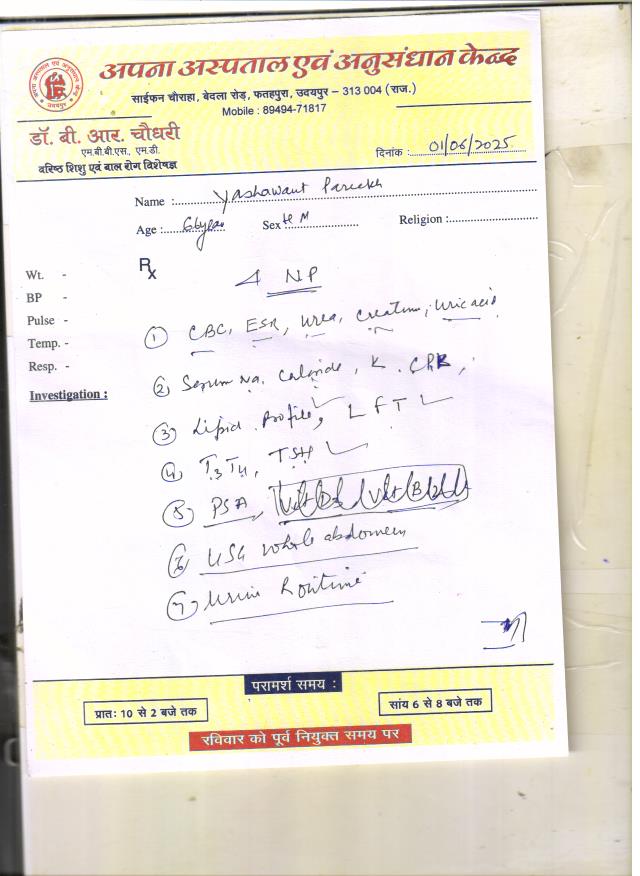 अपना अस्पताल एवं अनुसंधान केन्द्र
साईफन चौराहा, बेदला रोड़, फतहपुरा, उदयपुर – 313 004 (राज.)
Mobile : 89494-71817
डॉ. बी. आर. चौधरी
एम.बी.बी.एस., एम.डी.
वरिष्ठ शिशु एवं बाल रोग विशेषज्ञ
दिनांक : 01/06/2025
Name : Yashawant Pareekh
Age : 66 years Sex M Religion :
Rx
NP
Wt. -
BP -
Pulse -
Temp. -
Resp. -
Investigation :
① CBC, ESR, Urea, Creatine, Uric acid
② Serum Na, Chloride, K.
③ Lipid Profile, LFT
④ T3 T4, TSH
⑤ PSA,
⑥ USG whole abdomen
⑦ Urine Routine
परामर्श समय :
प्रातः 10 से 2 बजे तक
सांय 6 से 8 बजे तक
रविवार को पूर्व नियुक्त समय पर